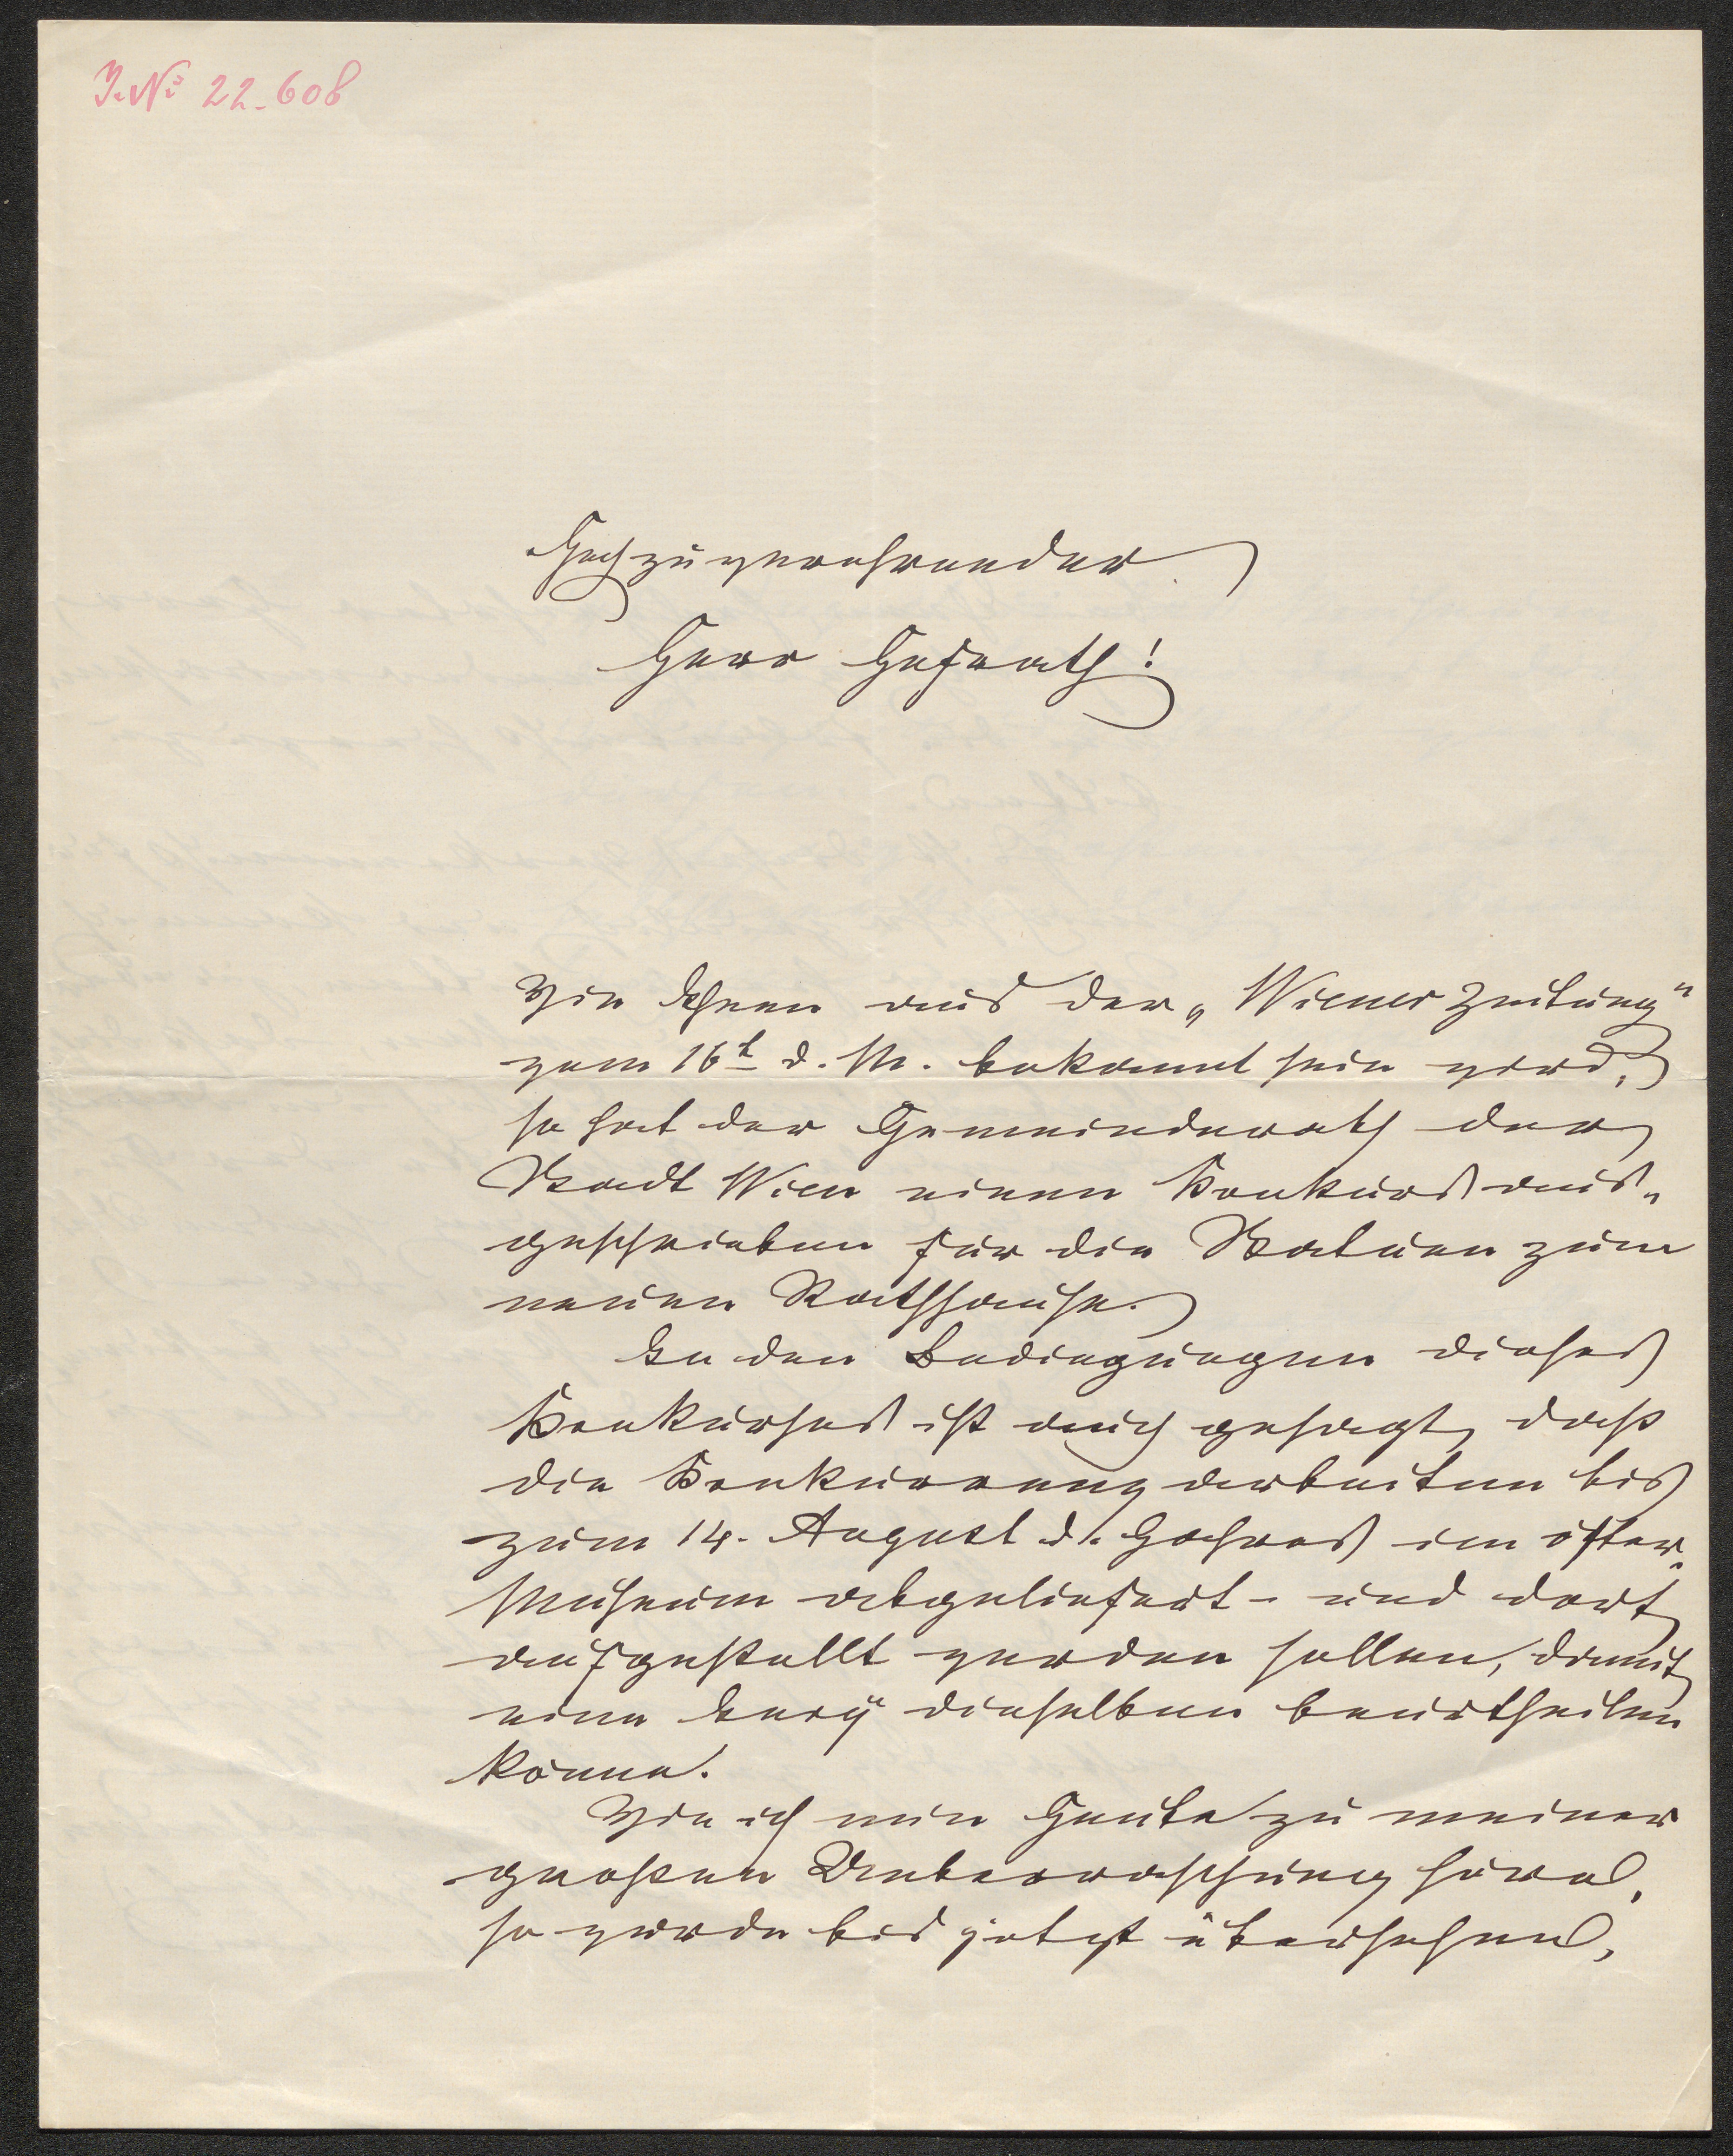 I. No 22.608
Hochzuverehrender
Herr Hofrath!
Wie Ihnen aus der „Wiener Zeitung"
vom 16t d. M. bekannt sein wird,
so hat der Gemeinderath der
Stadt Wien einen Konkurs aus„
geschrieben für die Statuen zum
neuen Rathhause.
In den Bedingungen dieses
Konkurses ist auch gesagt, dass
die Konkurrenzarbeiten bis
zum 14. August d. Jahres im öster.
Museum abgeliefert- und dort
aufgestellt werden sollen, damit
eine Jury dieselben beurtheilen
könne.
Wie ich nun Heute zu meiner
grossen Ueberraschung höre,
so wurde bis jetzt übersehen,